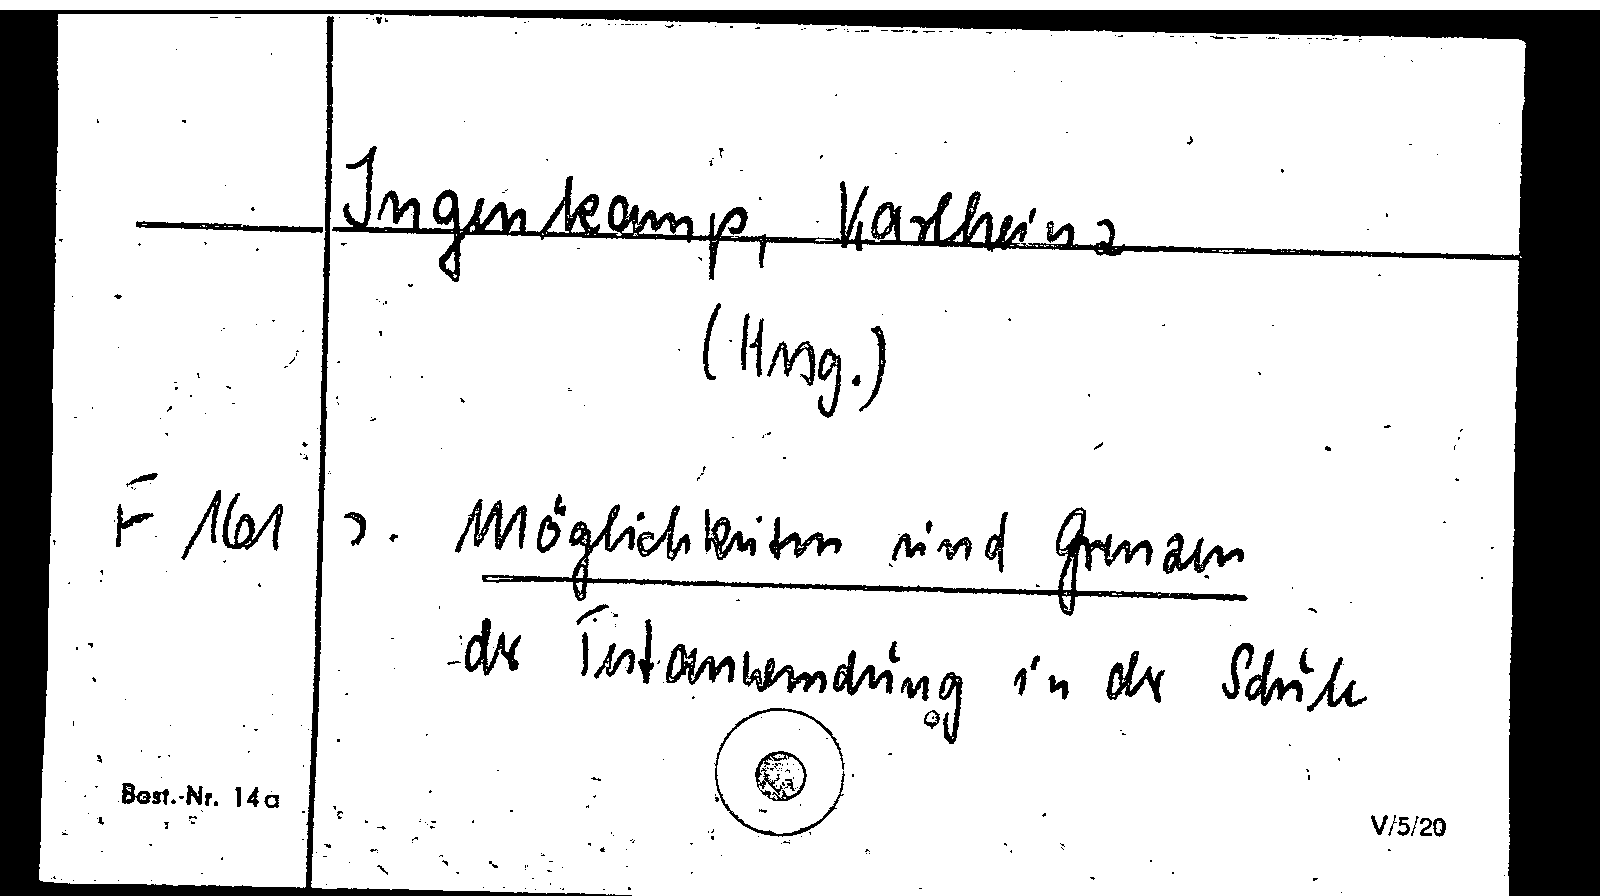 Ingenkamp, Karlheinz
(Hrsg.)
F 161 2. Möglichkeiten und Grenzen
der Testanwendung in der Schule
Best.-Nr. 14a
V/5/20